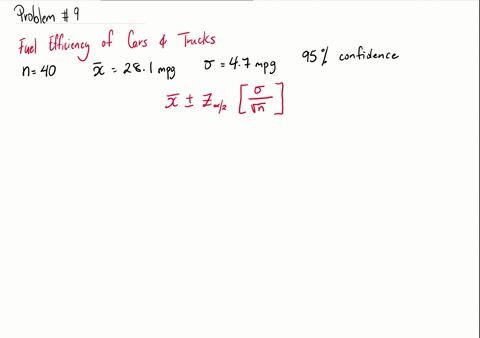 Problem # 9
Fuel Efficiency of Cars & Trucks
n=40 x̄ = 28.1 mpg σ = 4.7 mpg 95% confidence
x̄ ± Z_α/2 [σ/√n]